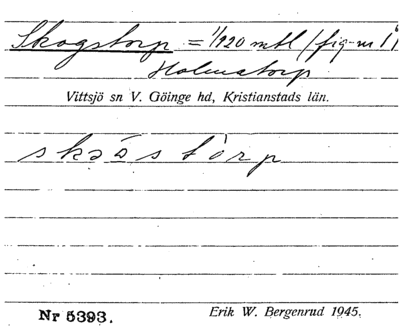 Skogstorp = 1/120 mtl (fig-nr 1
Holmstorp
Vittsjö sn V. Göinge hd, Kristianstads län.
Nr 5393.
Erik W. Bergenrud 1945.